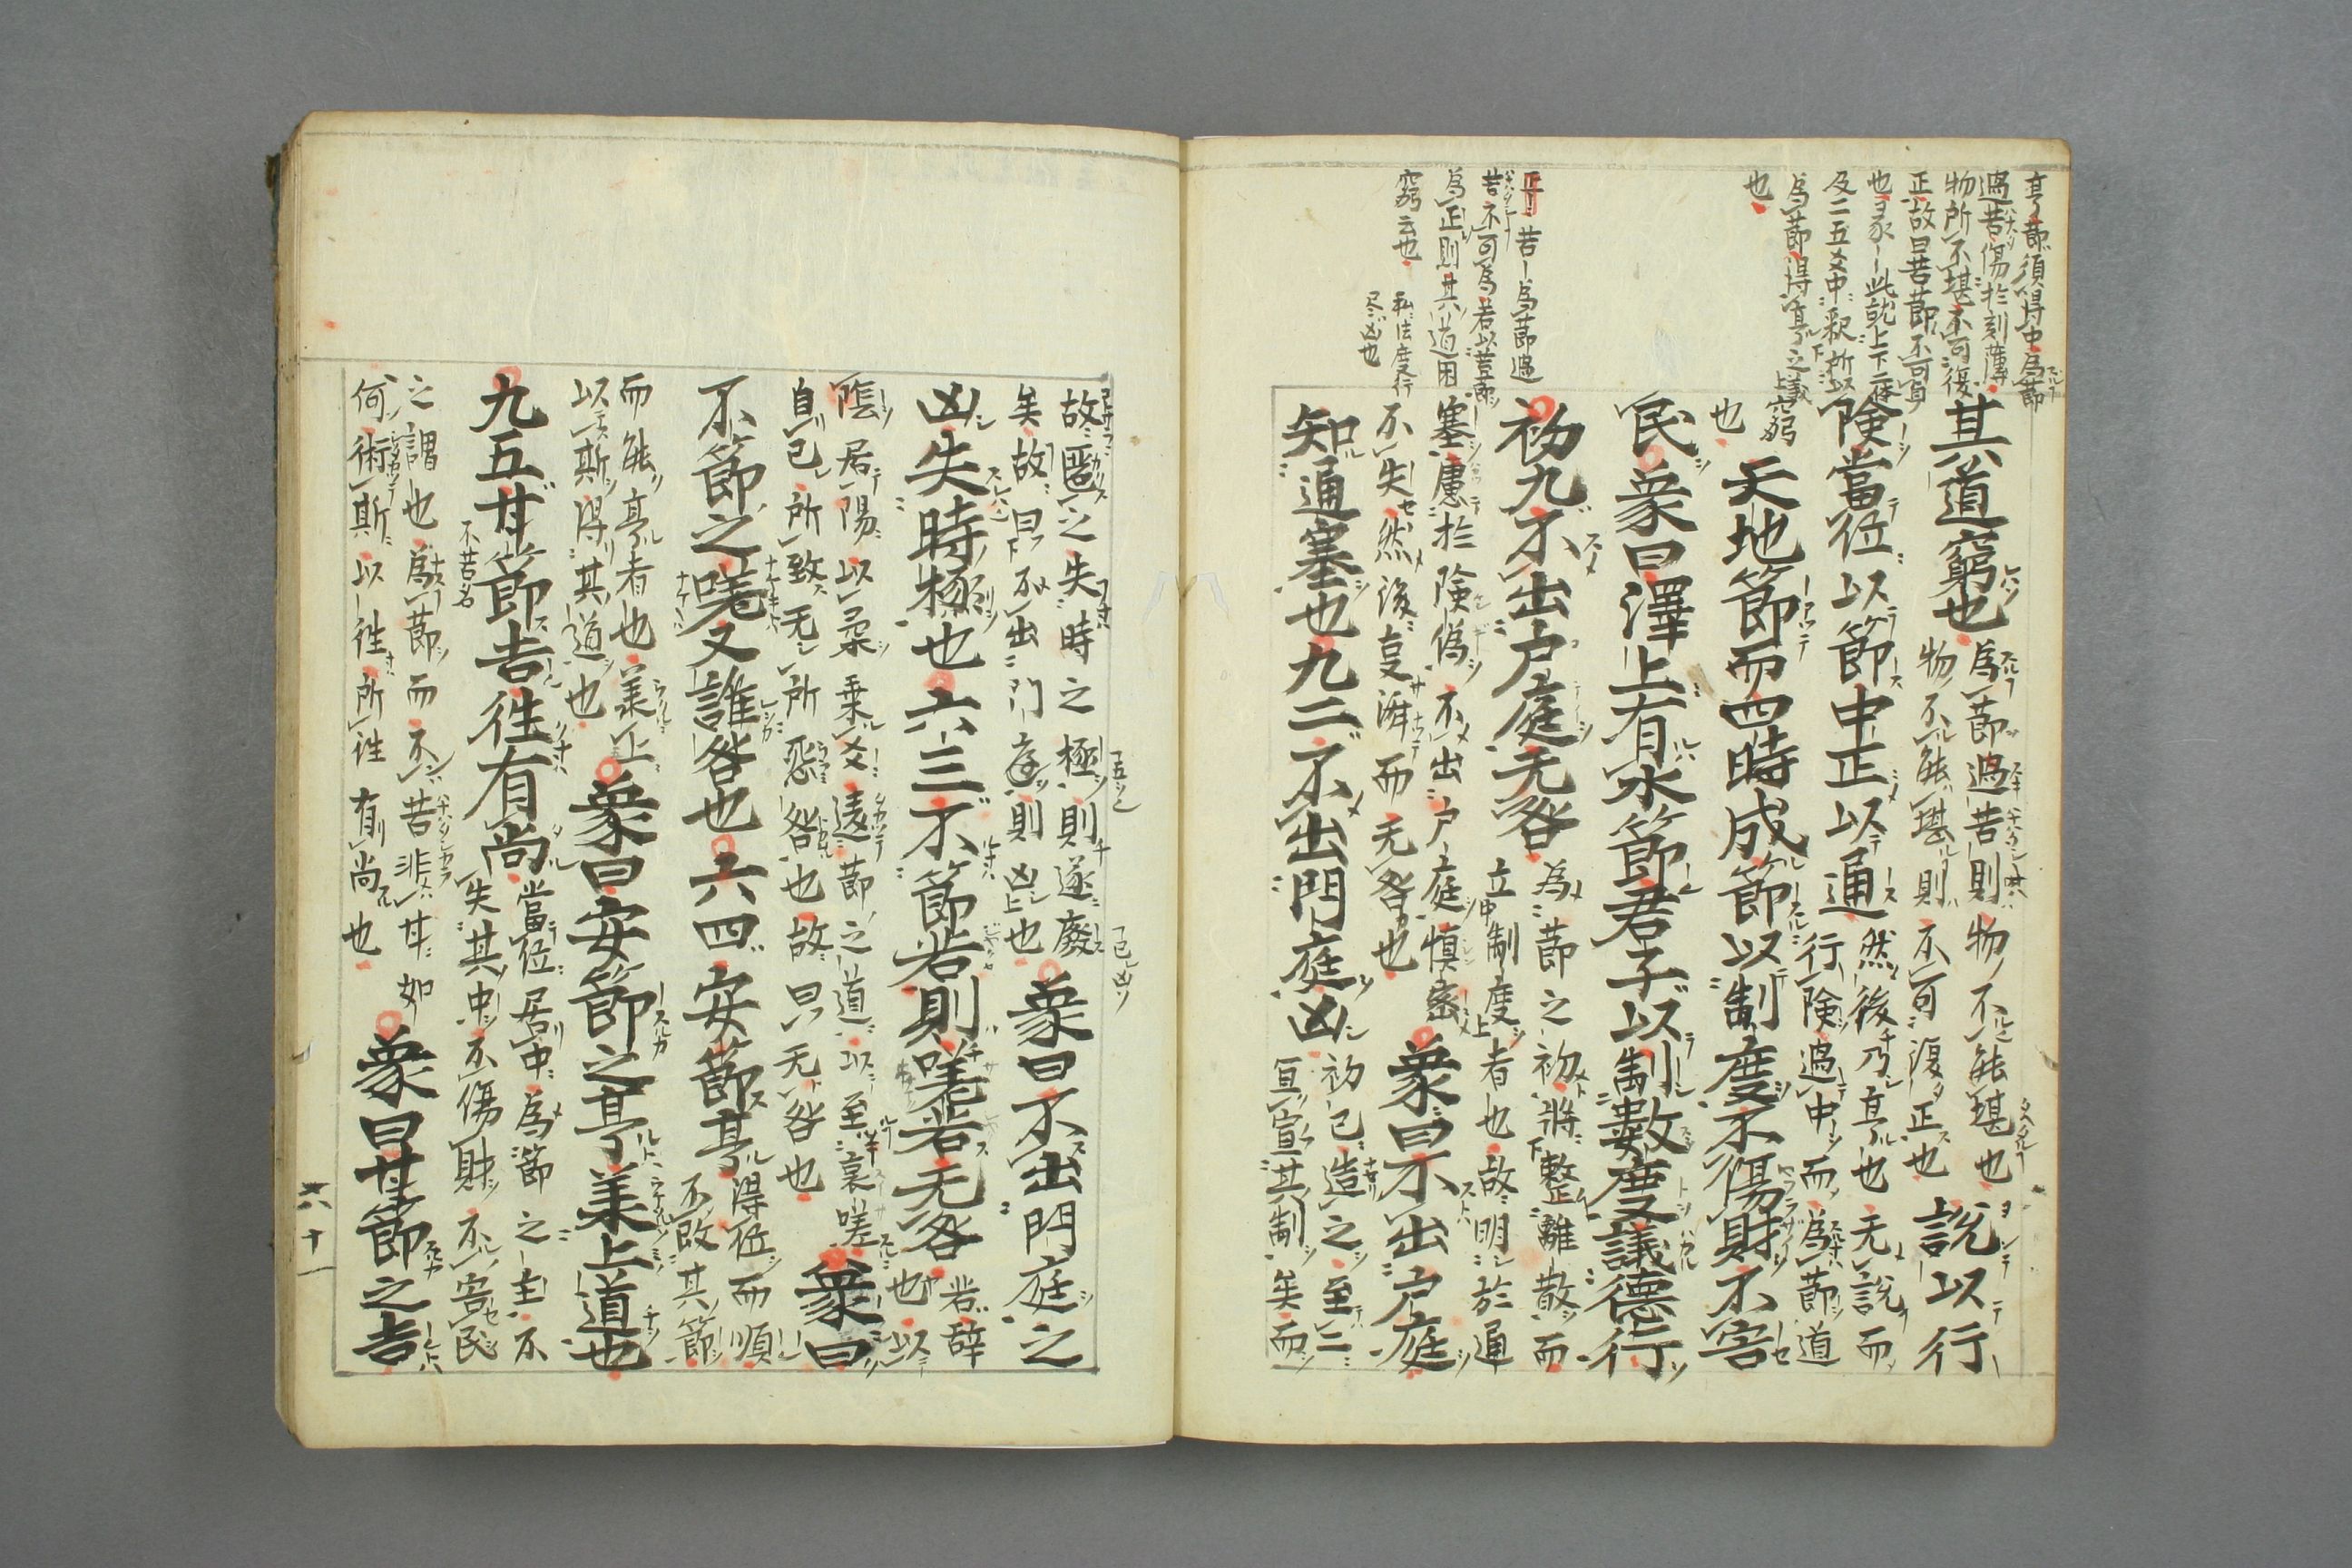 亨節須得中為節
過苦傷於刻薄
物所不堪不可復
正故曰苦節不可貞
也彖ー此就上下二体
及二五爻中釈所以
為節得亨之義
也
其道窮也
為節過苦則物不能堪也
物不能堪則不可復正也
説以行
険當位以節中正以通
然後乃亨也无説而
行険過中而為節道
窮
也
天地節而四時成節以制度不傷財不害
民象曰澤上有水節君子以制數度議德行
正ー苦ー為節過
苦不可為者以苦節
為正則其道困
窮云也
私法度行
尽凶也
初九不出戸庭无咎
為節之初將整離散而
立制度者也故明於通
塞慮於険偽不出戸庭慎密
不失然後亊済而无咎也
象曰不出戸庭
知通塞也九二不出門庭凶
初已造之至二
宜宣其制矣而
故匿之失時之極則遂廢
矣故曰不出門庭則凶也
象曰不出門庭之
凶失時極也六三不節若則嗟若无咎
若辞
也以
陰居陽以柔乗爻違節之道以至哀嗟
自己所致无所怨咎也故曰无咎也
象曰
不節之嗟又誰咎也六四安節亨
得位而順
不改其節
而能亨者也羕上
以斯得其道也
象曰安節之亨羕上道也
九五甘節吉往有尚
不苦名
當位居中為節之主不
失其中不傷財不害民
之謂也為節而不苦非甘如
何術斯以往所往有尚也
象曰甘節之吉
六十一